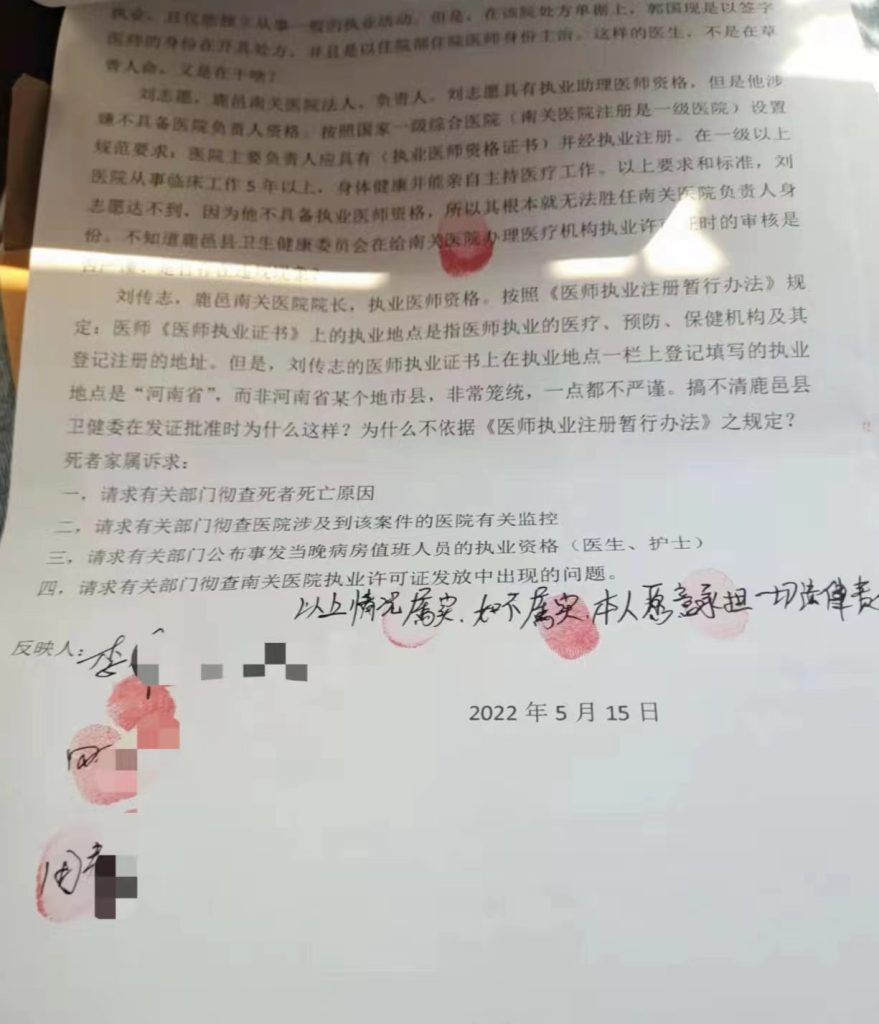 执业，且仅能独立从事一般的执业活动。但是，在该院处方单据上，郭国现是以签字
医师的身份在开具处方，并且是以住院部住院医师身份主治。这样的医生，不是在草
菅人命，又是在干啥？
刘志愿，鹿邑南关医院法人、负责人。刘志愿具有执业助理医师资格，但是他涉
嫌不具备医院负责人资格。按照国家一级综合医院（南关医院注册是一级医院）设置
规范要求：医院主要负责人应具有（执业医师资格证书）并经执业注册。在一级以上
医院从事临床工作 5 年以上，身体健康并能亲自主持医疗工作。以上要求和标准，刘
志愿达不到，因为他不具备执业医师资格，所以其根本就无法胜任南关医院负责人身
份。不知道鹿邑县卫生健康委员会在给南关医院办理医疗机构执业许可证时的审核是
刘传志，鹿邑南关医院院长，执业医师资格。按照《医师执业注册暂行办法》规
定：医师《医师执业证书》上的执业地点是指医师执业的医疗、预防、保健机构及其
登记注册的地址。但是，刘传志的医师执业证书上在执业地点一栏上登记填写的执业
地点是“河南省”，而非河南省某个地市县，非常笼统，一点都不严谨。搞不清鹿邑县
卫健委在发证批准时为什么这样？为什么不依据《医师执业注册暂行办法》之规定？
死者家属诉求：
一，请求有关部门彻查死者死亡原因
二，请求有关部门彻查医院涉及到该案件的医院有关监控
三，请求有关部门公布事发当晚病房值班人员的执业资格（医生、护士）
四，请求有关部门彻查南关医院执业许可证发放中出现的问题。
以上情况属实，如不属实，本人愿意承担一切法律责
反映人：李
2022 年 5 月 15 日
周